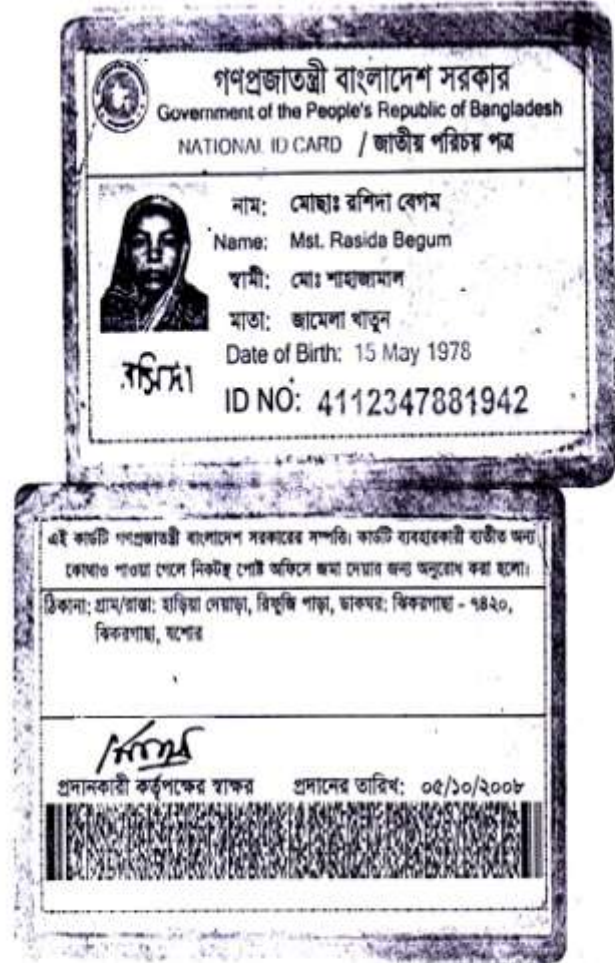 গণপ্রজাতন্ত্রী বাংলাদেশ সরকার
Government of the People's Republic of Bangladesh
NATIONAL ID CARD / জাতীয় পরিচয় পত্র
নাম: মোছাঃ রশিদা বেগম
Name: Mst. Rasida Begum
স্বামী: মোঃ শাহাজামাল
মাতা: জামেলা খাতুন
Date of Birth: 15 May 1978
রসিদা
ID NO: 4112347881942
এই কার্ডটি গণপ্রজাতন্ত্রী বাংলাদেশ সরকারের সম্পত্তি। কার্ডটি ব্যবহারকারী ব্যতীত অন্য
কোথাও পাওয়া গেলে নিকটস্থ পোষ্ট অফিসে জমা দেয়ার জন্য অনুরোধ করা হলো।
ঠিকানা: গ্রাম/রাস্তা: হাড়িয়া দেয়াড়া, রিফুজি পাড়া, ডাকঘর: ঝিকরগাছা - ৭৪২০,
ঝিকরগাছা, যশোর
প্রদানকারী কর্তৃপক্ষের স্বাক্ষর প্রদানের তারিখ: ০৫/১০/২০০৮